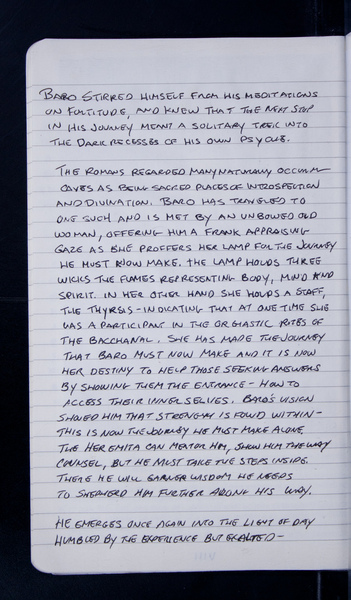 BABO STIRRED HIMSELF FROM HIS MEDITATIONS
ON FULTITUDE, AND KNEW THAT THE NEXT STEP
IN HIS JOURNEY MEANT A SOLITARY TREK INTO
THE DARK RECESSES OF HIS OWN PSYCHE.
THE ROMANS REGARDED MANY NATURALLY OCCURING
CAVES AS BEING SACRED PLACES OF INTROSPECTION
AND DIVINATION. BABO HAS TRAVELED TO
ONE SUCH AND IS MET BY AN UNBOWED OLD
WOMAN, OFFERING HIM A FRANK APPRAISING
GAZE AS SHE PROFFERS HER LAMP FOR THE JOURNEY
HE MUST NOW MAKE. THE LAMP HOLDS THREE
WICKS THE FLAMES REPRESENTING BODY, MIND AND
SPIRIT. IN HER OTHER HAND SHE HOLDS A STAFF,
THE THYRSIS - INDICATING THAT AT ONE TIME SHE
WAS A PARTICIPANT IN THE ORGIASTIC RITES OF
THE BACCHANAL. SHE HAS MADE THE JOURNEY
THAT BABO MUST NOW MAKE AND IT IS NOW
HER DESTINY TO HELP THOSE SEEKING ANSWERS
BY SHOWING THEM THE ENTRANCE - HOW TO
ACCESS THEIR INNER SELVES. BABO'S VISION
SHOWED HIM THAT STRENGTH IS FOUND WITHIN -
THIS IS NOW THE JOURNEY HE MUST MAKE ALONE,
THE HEREMITA CAN MENTOR HIM, SHOW HIM THE WAY
COUNSEL, BUT HE MUST TAKE THE STEPS INSIDE.
THERE HE WILL GARNER WISDOM HE NEEDS
TO SHEPHERD HIM FURTHER ALONG HIS WAY.
HE EMERGES ONCE AGAIN INTO THE LIGHT OF DAY
HUMBLED BY THE EXPERIENCE BUT EXALTED -